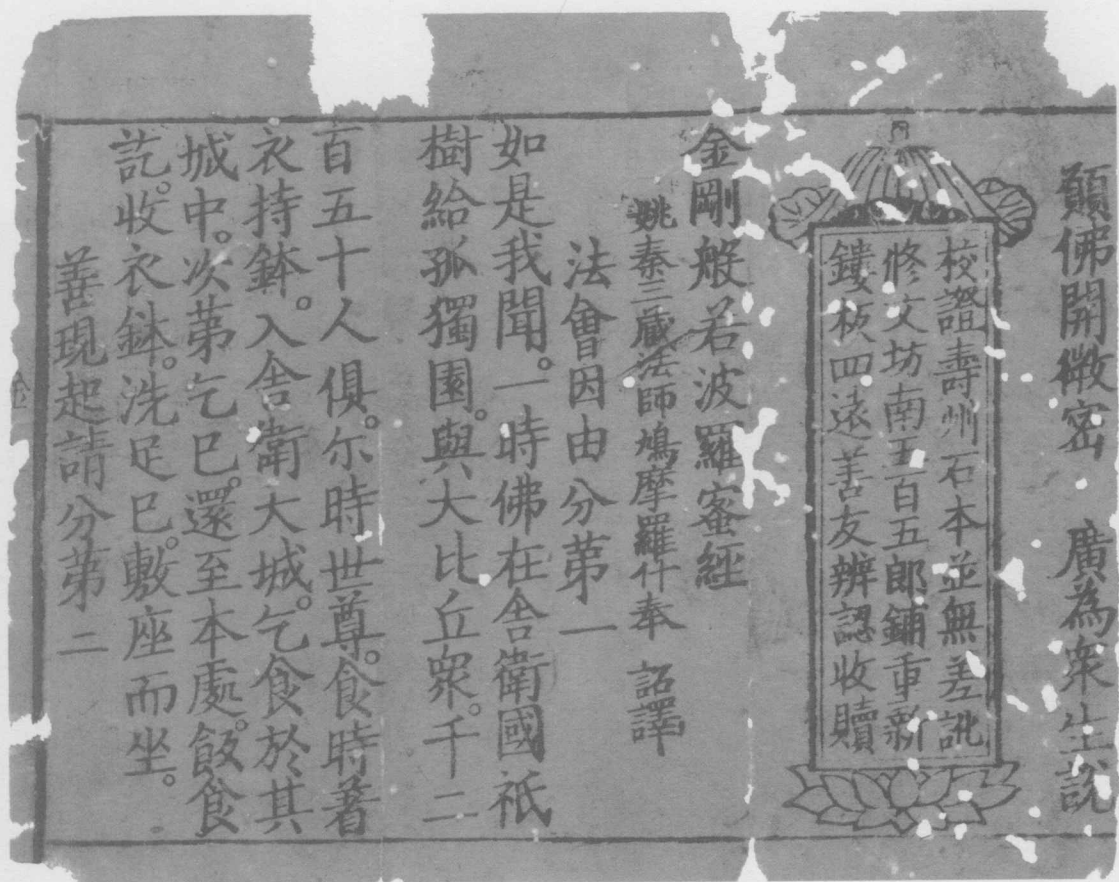 願佛開微密　廣為衆生說
校證壽州石本並無差訛
修文坊南王百五郎鋪重新
鏤板四遠善友辨認收贖
金剛般若波羅蜜經
姚秦三藏法師鳩摩羅什奉　詔譯
法會因由分第一
如是我聞。一時佛在舍衛國祇
樹給孤獨園。與大比丘衆。千二
百五十人俱。尔時世尊。食時著
衣持鉢。入舍衛大城。乞食於其
城中。次第乞已。還至本處。飯食
訖。收衣鉢。洗足已。敷座而坐。
善現起請分第二